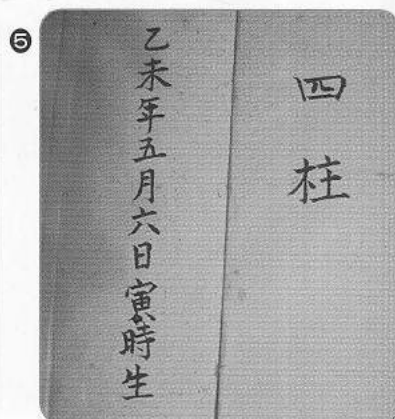 ❺
四柱
乙未年五月六日寅時生